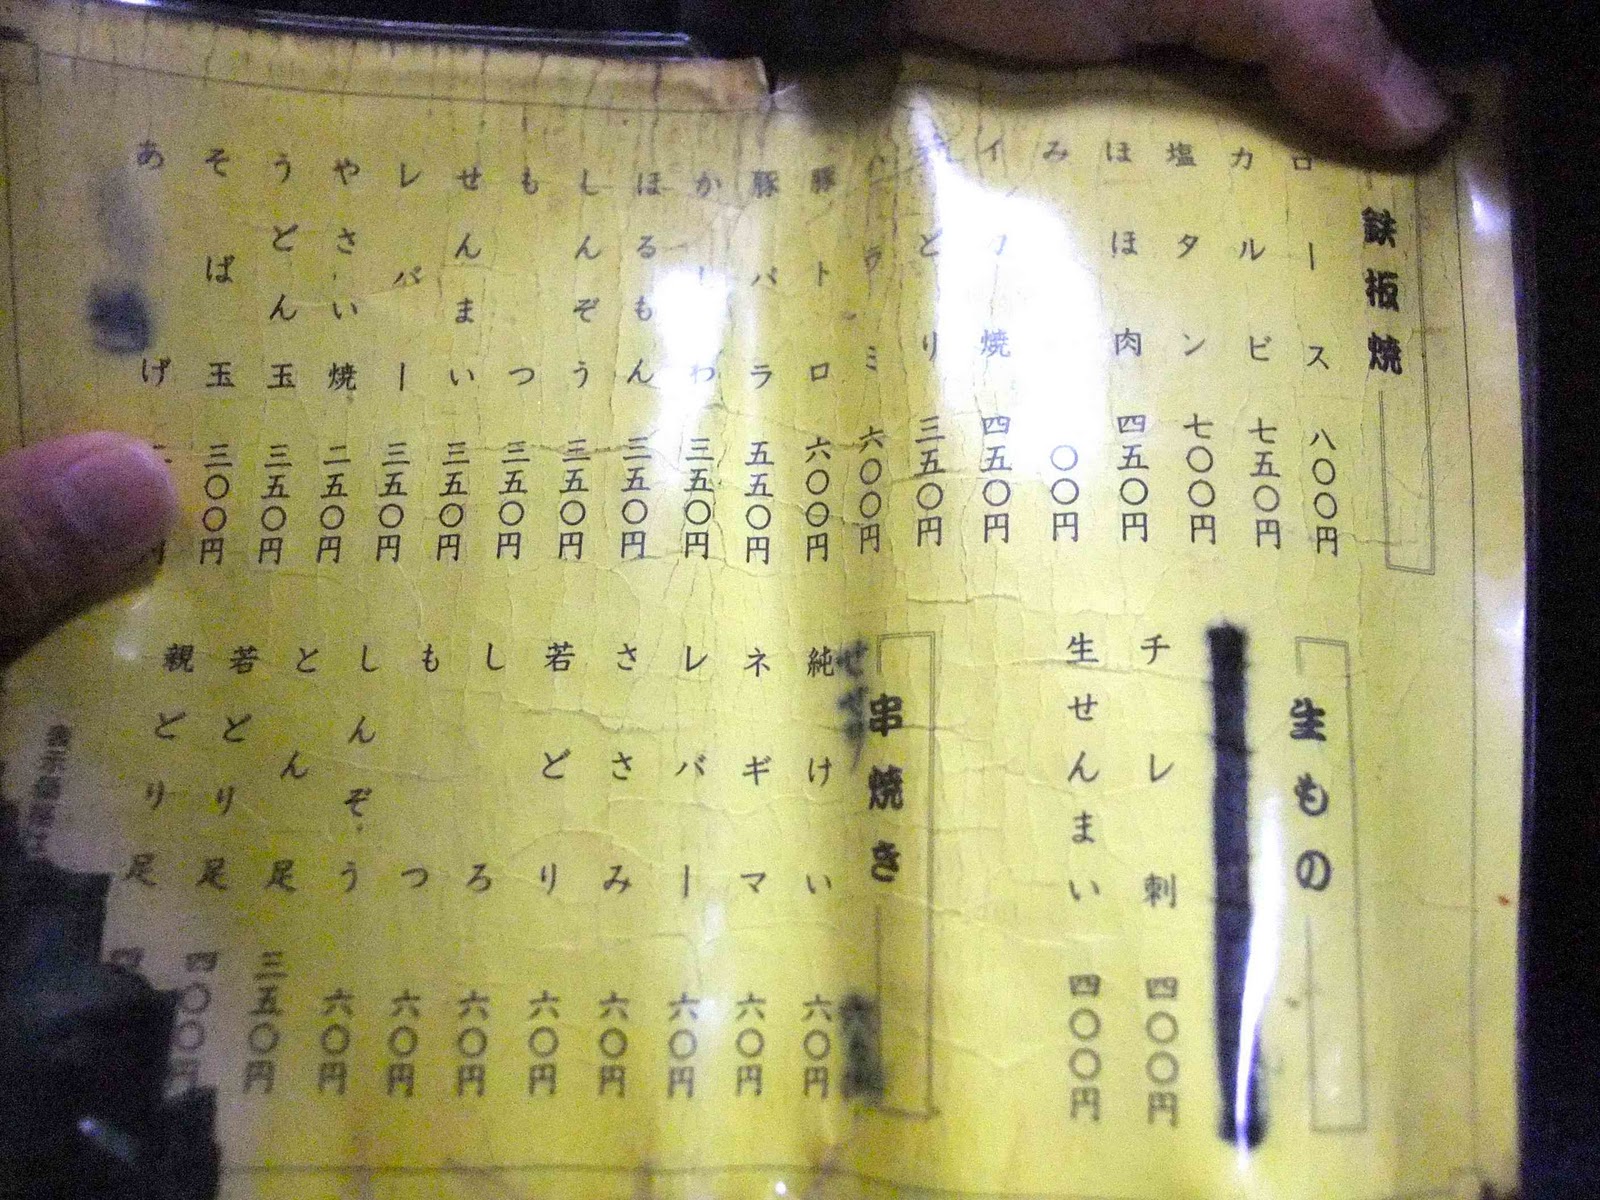 鉄板焼
ロース 八〇〇円
カルビ 七五〇円
塩タン 七〇〇円
ほほ肉 四五〇円
み 〇〇円
イカ焼 四五〇円
とり 三五〇円
ハラミ 六〇〇円
豚トロ 六〇〇円
豚バラ 五五〇円
かしわ 三五〇円
ほるもん 三五〇円
しんぞう 三五〇円
もつ 三五〇円
せんまい 三五〇円
レバー 三五〇円
やさい焼 二五〇円
うどん玉 三五〇円
そば玉 三〇〇円
あげ
生もの
チレ刺 四〇〇円
生せんまい 四〇〇円
串焼き
純けい 六〇円
ネギマ 六〇円
レバー 六〇円
ささみ 六〇円
若どり 六〇円
しろ 六〇円
もつ 六〇円
しんぞう 六〇円
とん足 三五〇円
若どり足 四〇〇円
親どり足 四